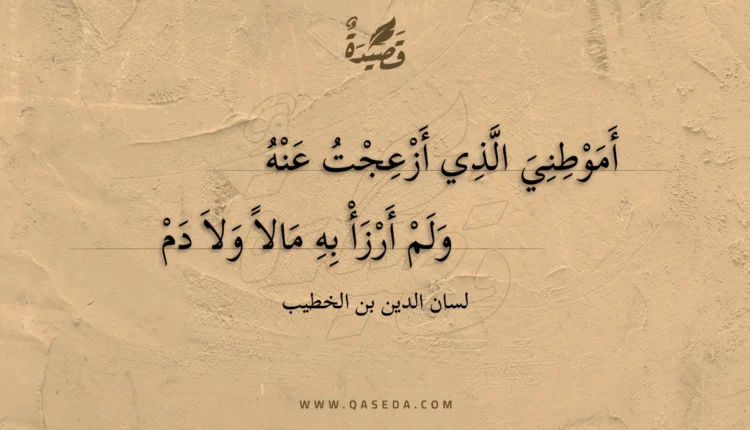 قَصِيدَةٌ
أَمَوْطِنِيَ الَّذِي أَزْعِجْتُ عَنْهُ
وَلَمْ أَرْزَأْ بِهِ مَالاً وَلاَ دَمْ
لسان الدين بن الخطيب
WWW.QASEDA.COM